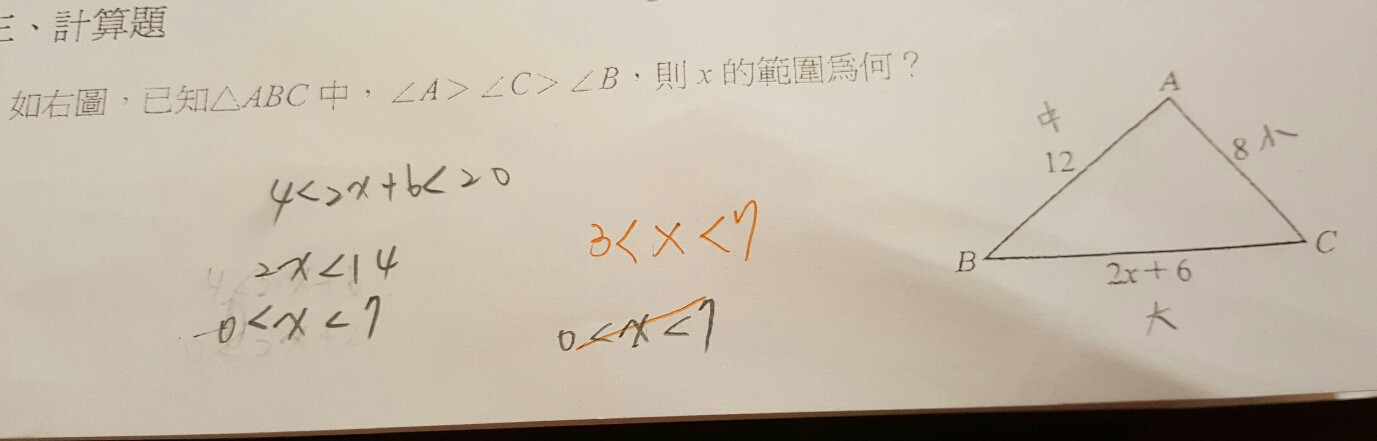 三、計算題
如右圖，已知△ABC中，∠A＞∠C＞∠B，則x的範圍為何？
4<2x+6<20
2x<14
0<x<7
3<x<7
0<x<7
A
中
12
8 小
B
C
2x+6
大